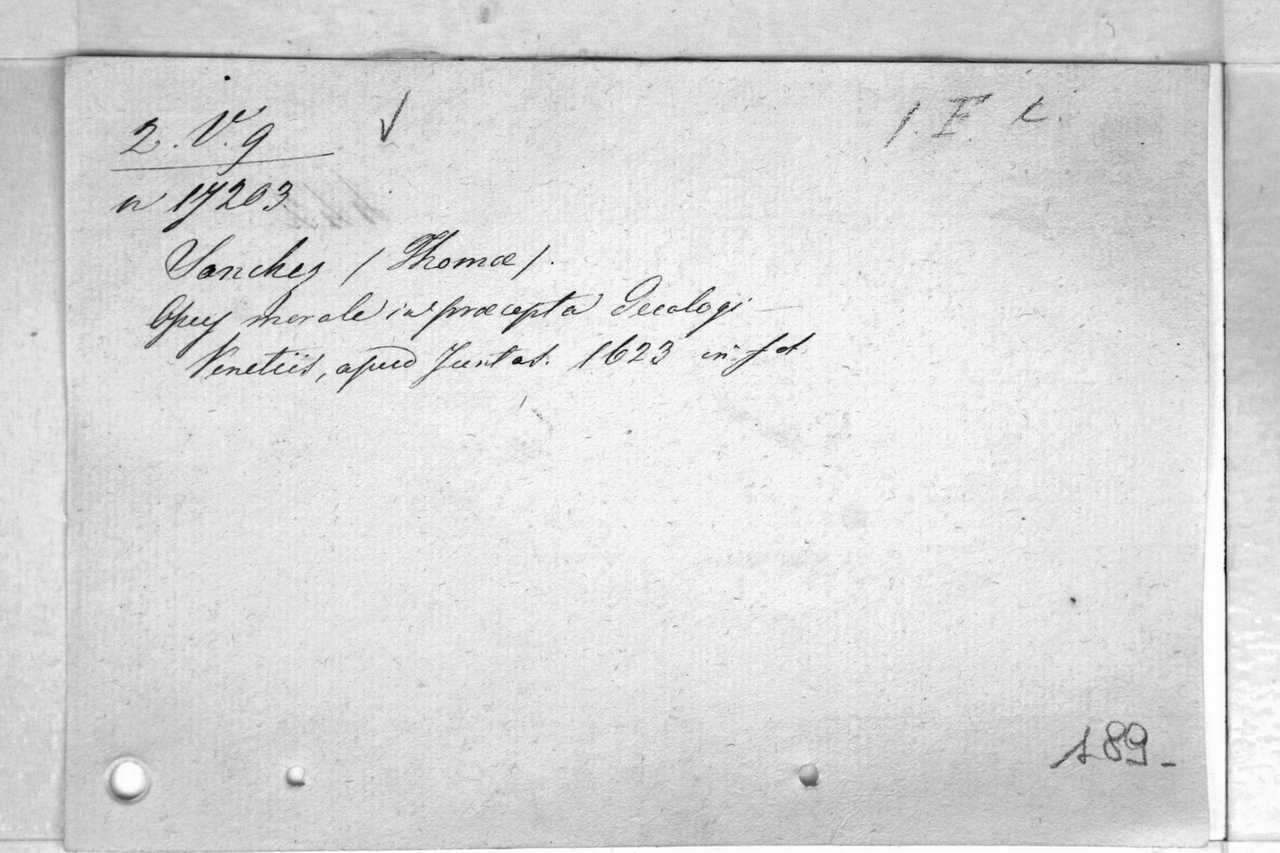 2. V. 9
1. F. c.
n 17203
Sanchez (Thomæ).
Opus morale in præcepta Decalogi
Venetiis, apud Juntas. 1623 in-fol.
189-